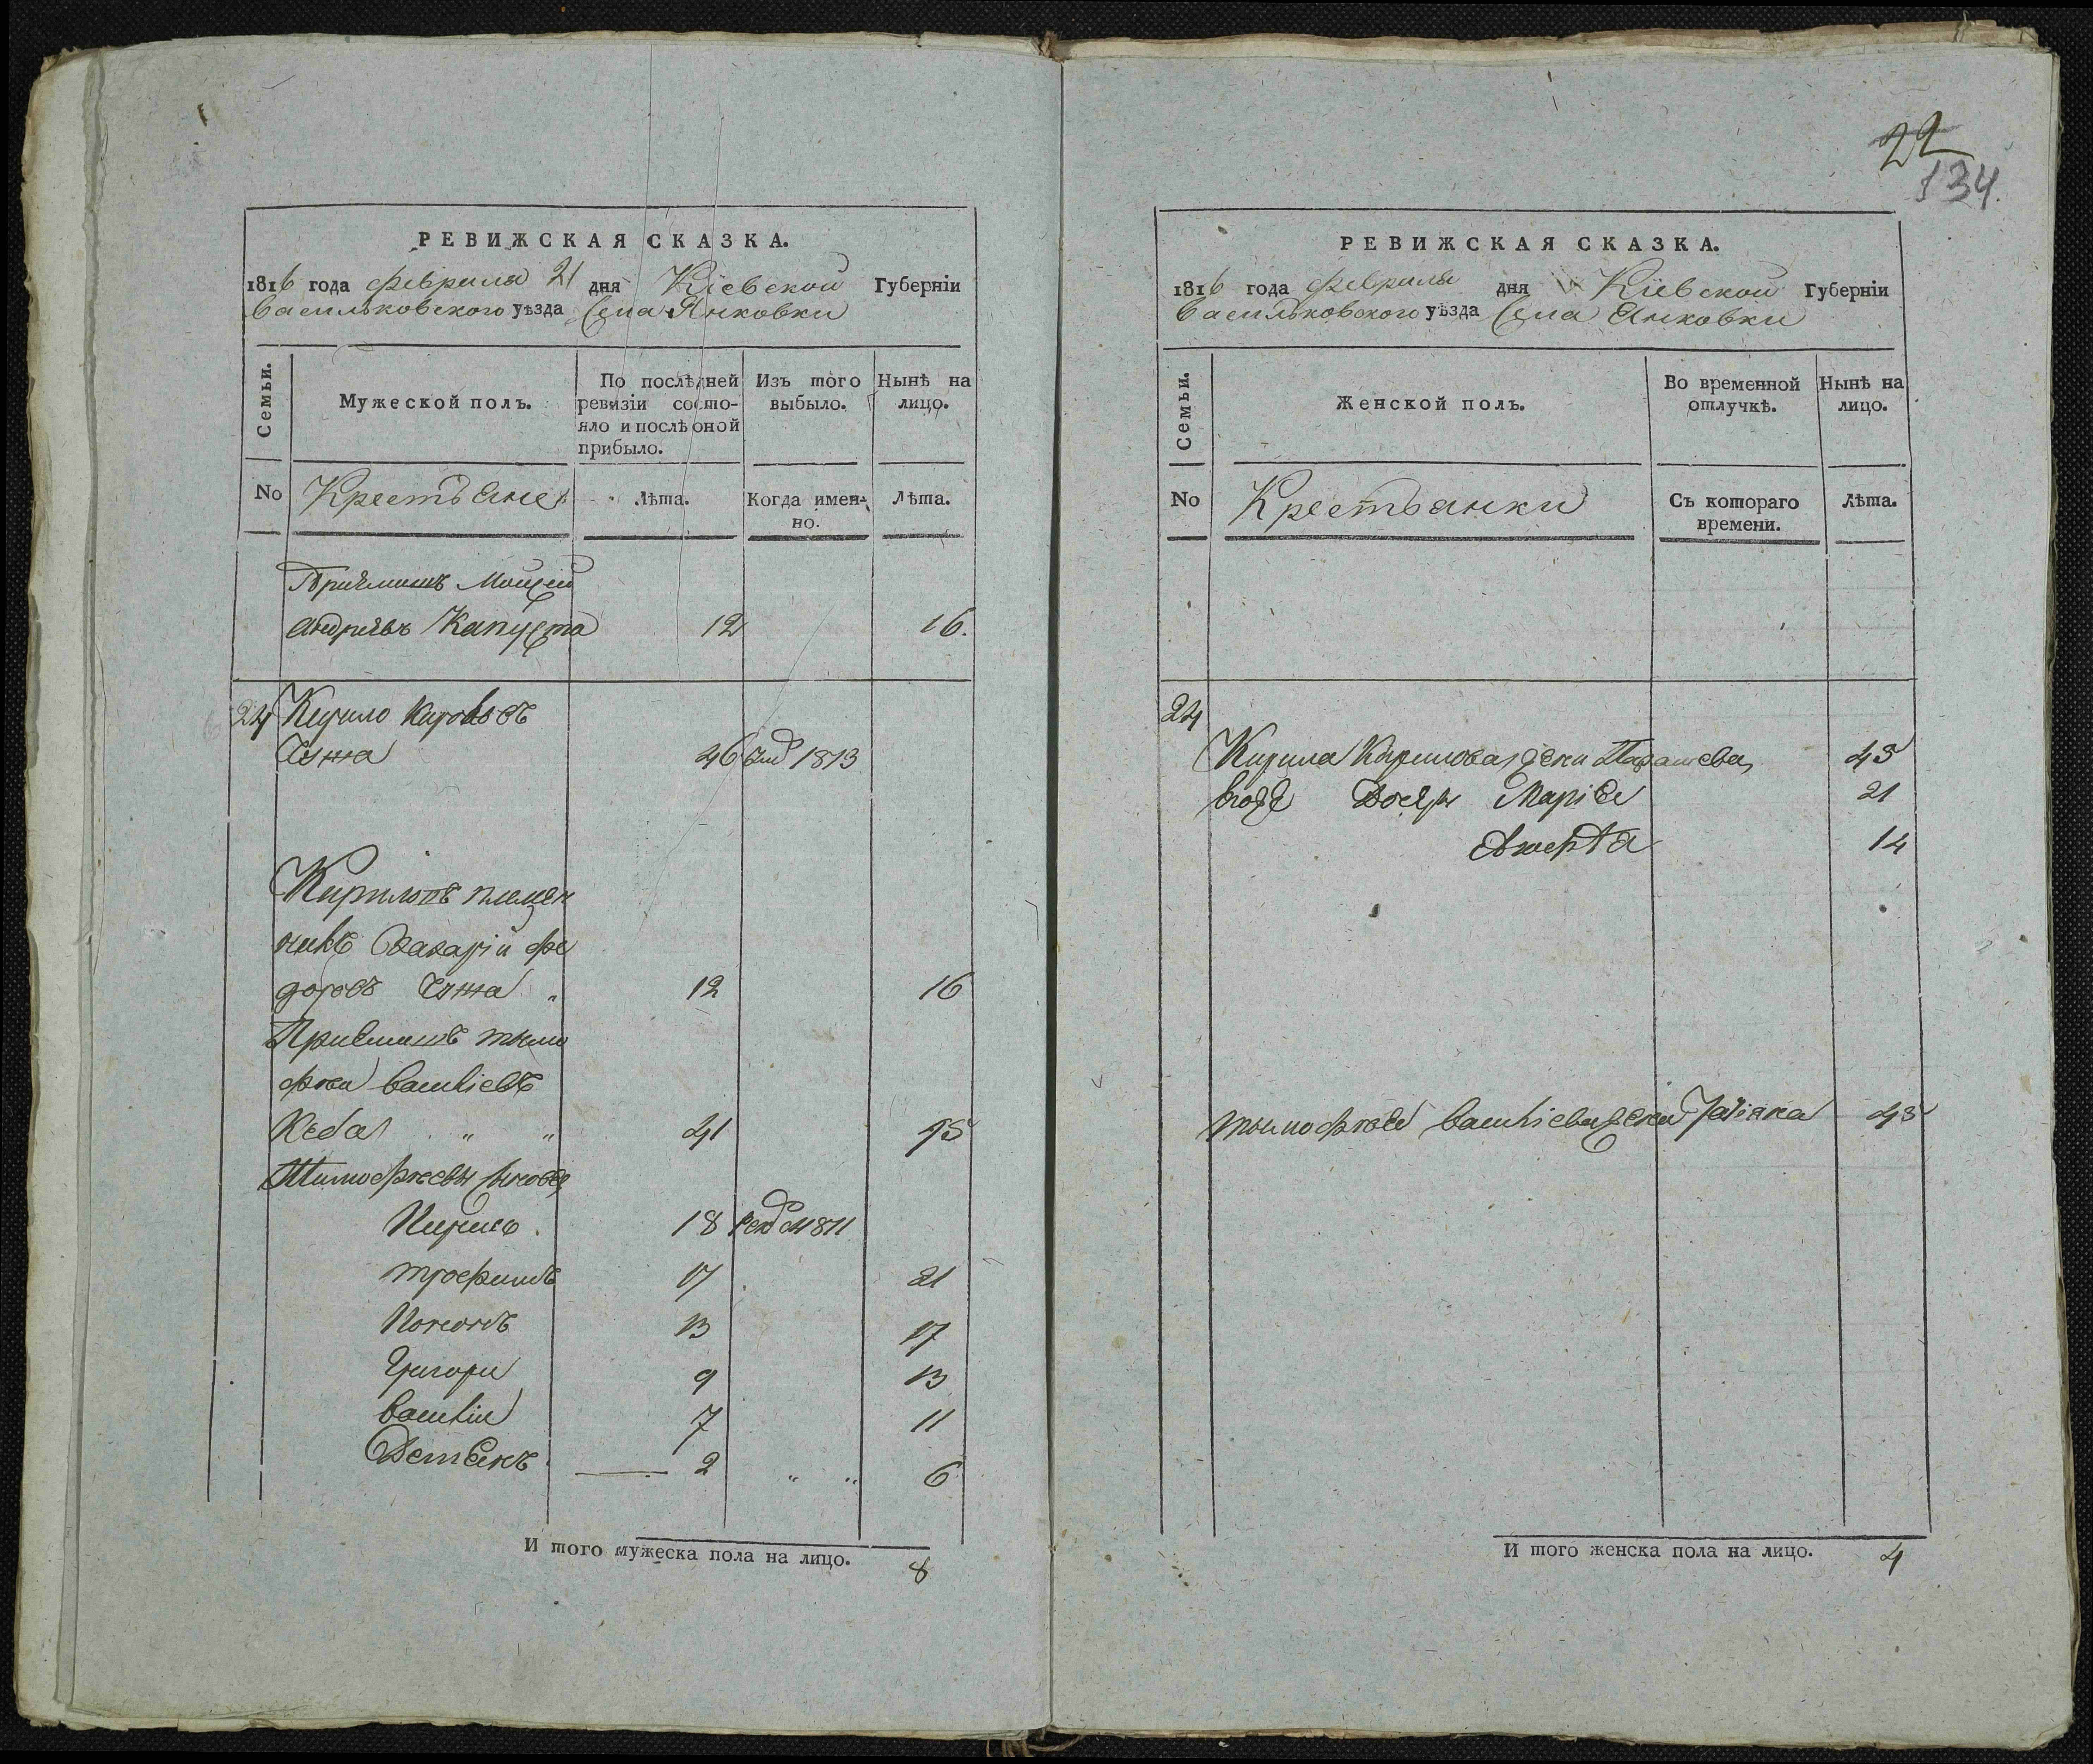 РЕВИЖСКАЯ СКАЗКА.
1816 года февраля 21 дня Кіевской Губерніи
Васильковского уѣзда Села Янковки
Семьи.
Мужеской полъ.
По послѣдней ревизіи состо-
яло и послѣ оной
прибыло.
Изъ того
выбыло.
Нынѣ на
лицо.
No Крестьяне
Лѣта.
Когда имен-
но.
Лѣта.
Пріймишъ
Андреевъ Капуста 12 16.
24 Кирило
46 1813
Кириловъ племен
никъ Захарій Фе
доровъ 12 16
Приемишъ Тимо
фей Василіевъ
41 45
Тимофеевы Сыновья
Кирило 18 1811
Трофимъ 17 21
13 17
Григори 9 13
Васили 7 11
Демьянъ 2 " " 6
И того мужеска пола на лицо. 8
22
134.
РЕВИЖСКАЯ СКАЗКА.
1816 года февраля дня Кіевской Губерніи
Васильковского уѣзда Села Янковки
Семьи.
Женской полъ.
Во временной
отлучкѣ.
Нынѣ на
лицо.
No Крестьянки
Съ котораго
времени.
Лѣта.
24
Кирила Кирилова жена 45
Марія 21
14
Тимофея Василіева жена 45
И того женска пола на лицо. 4